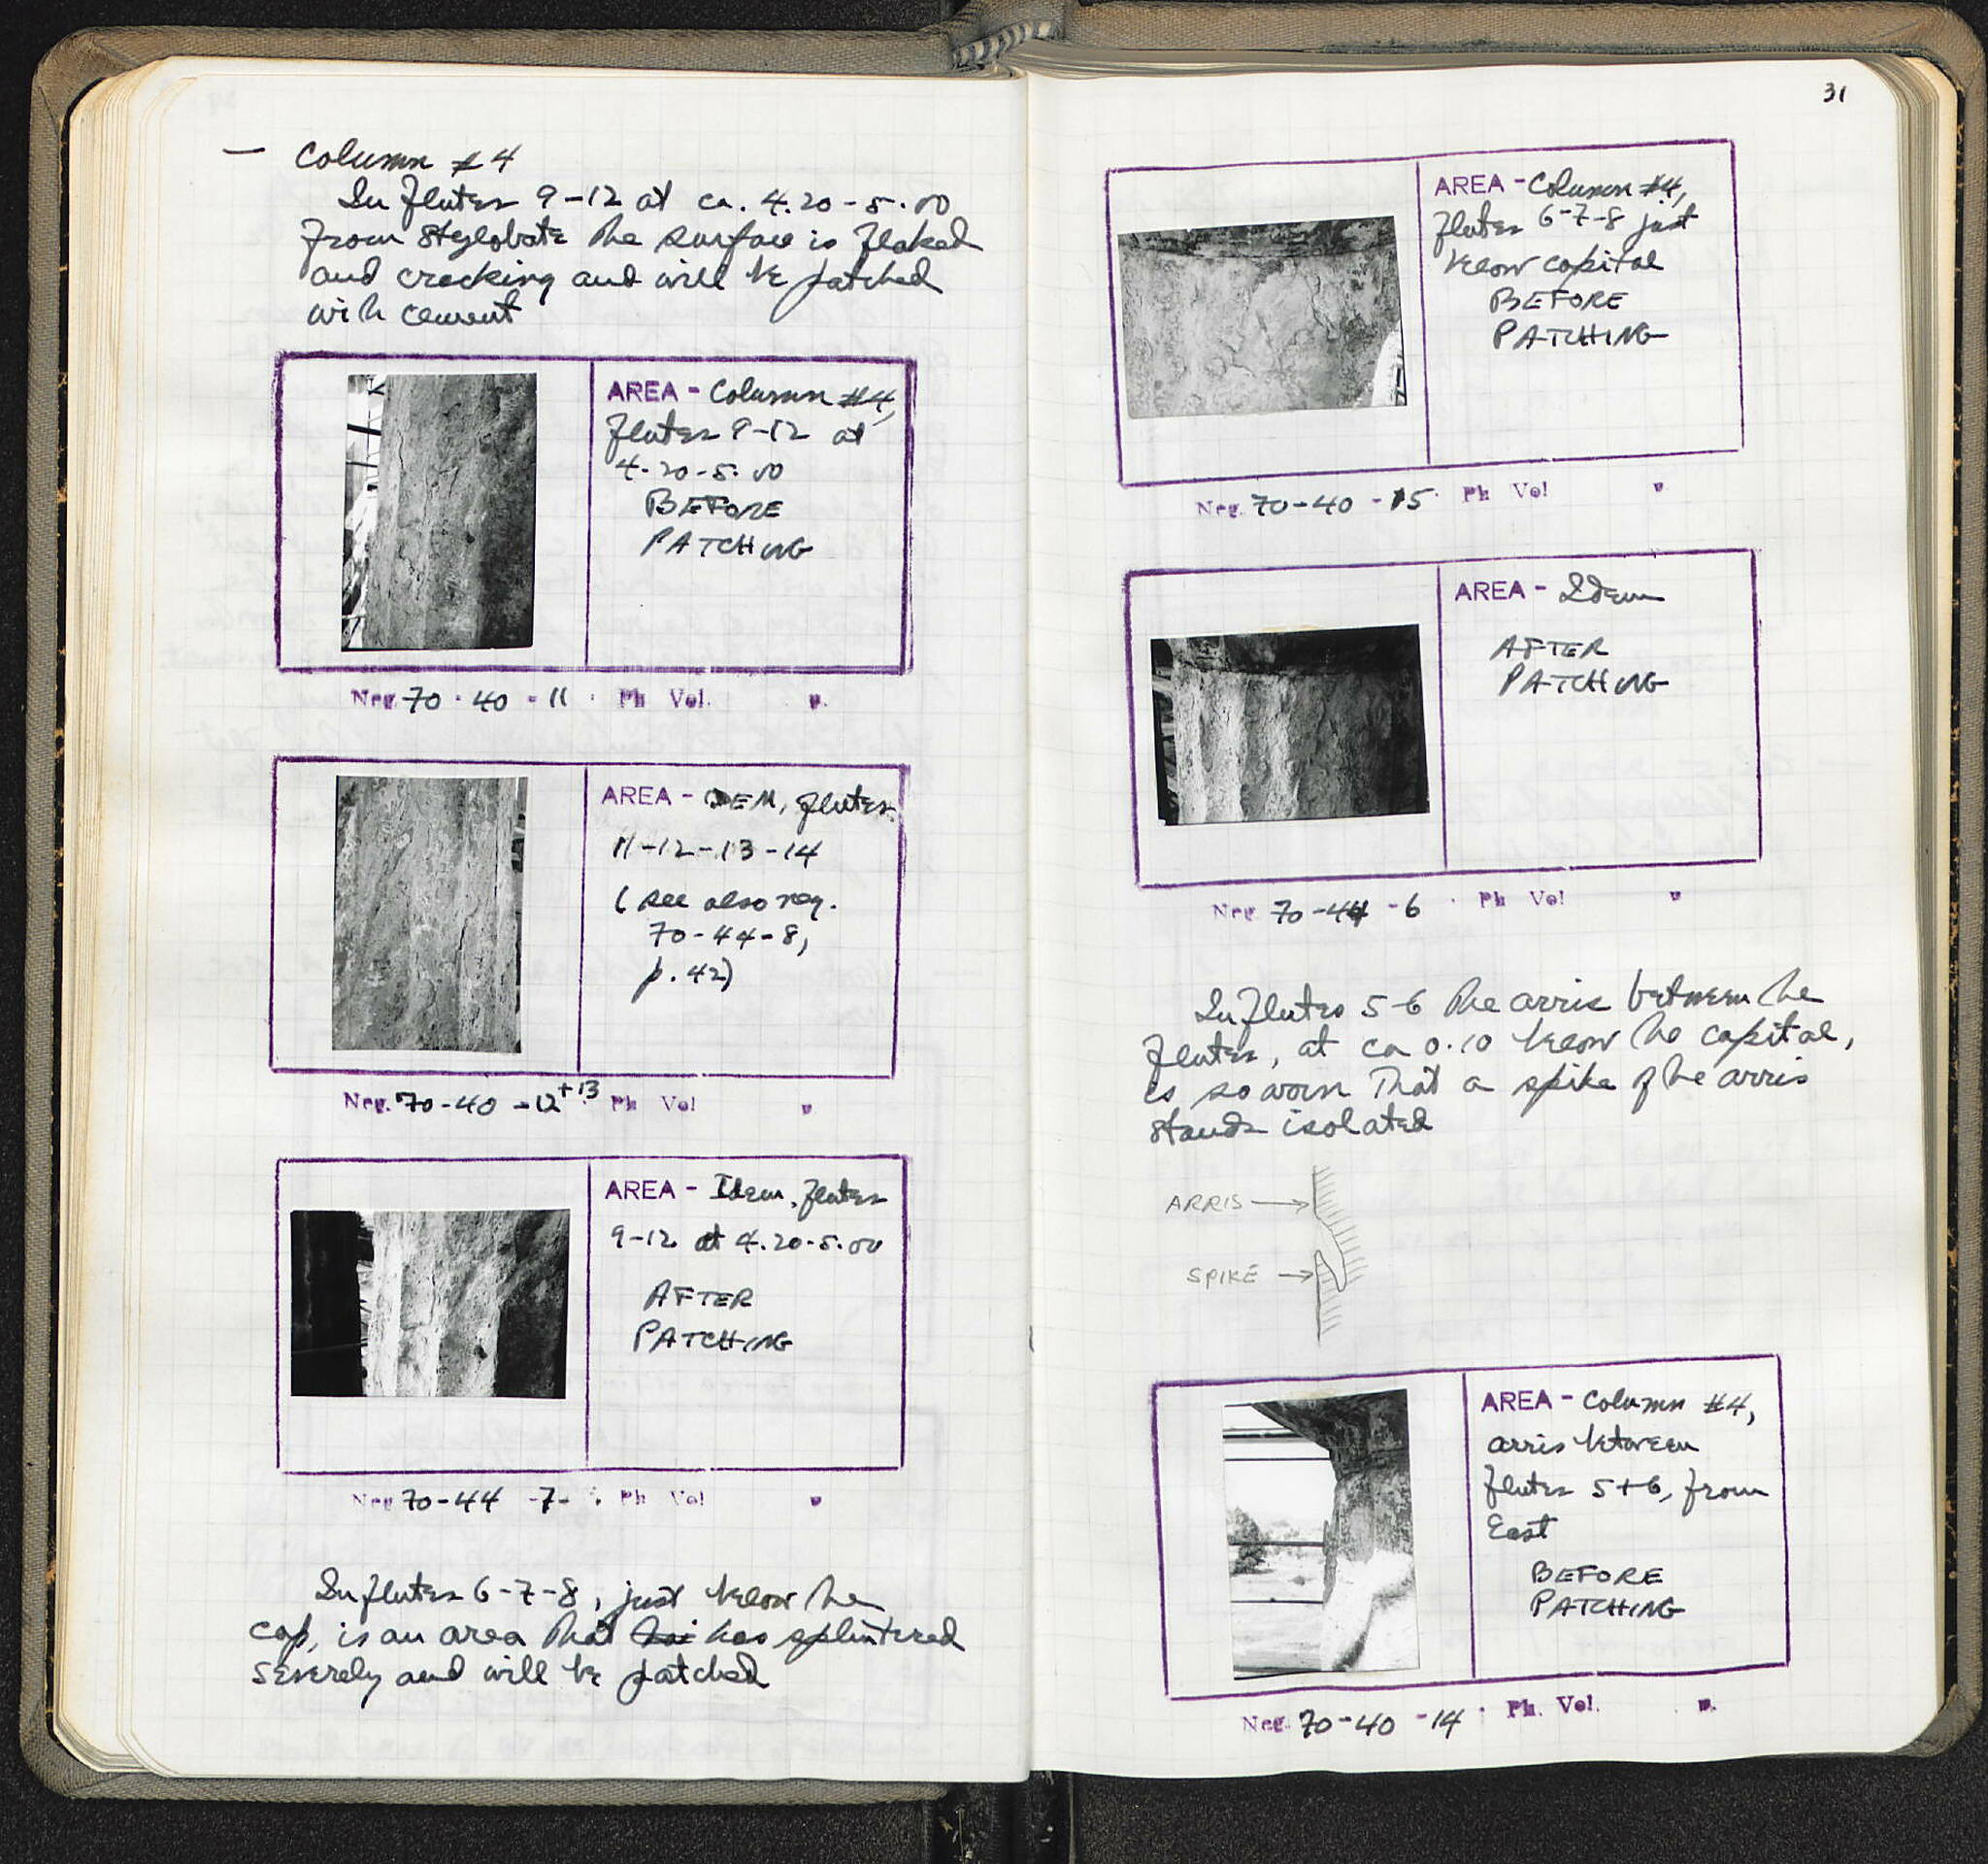 — Column #4
In flutes 9-12 at ca. 4.20-5.00
from stylobate the surface is flaked
and cracking and will be patched
with cement
AREA - Column #4,
flutes 9-12 at
4.20-5.00
BEFORE
PATCHING
Neg. 70-40-11 Ph Vol. p.
AREA - IDEM, flutes
11-12-13-14
(see also neg.
70-44-8,
p. 42)
Neg. 70-40-12+13 Ph Vol p
AREA - Idem, flutes
9-12 at 4.20-5.00
AFTER
PATCHING
Neg 70-44-7- Ph Vol p
In flutes 6-7-8, just below the
cap, is an area that has splintered
severely and will be patched
31
AREA - Column #4,
flutes 6-7-8 just
below capital
BEFORE
PATCHING
Neg. 70-40-15 Ph Vol p
AREA - Idem
AFTER
PATCHING
Neg. 70-44-6 Ph Vol p
In flutes 5-6 the arris between the
flutes, at ca 0.10 below the capital,
is so worn that a spike of the arris
stands isolated
ARRIS
SPIKE
AREA - Column #4,
arris between
flutes 5+6, from
East
BEFORE
PATCHING
Neg. 70-40-14 Ph. Vol. p.